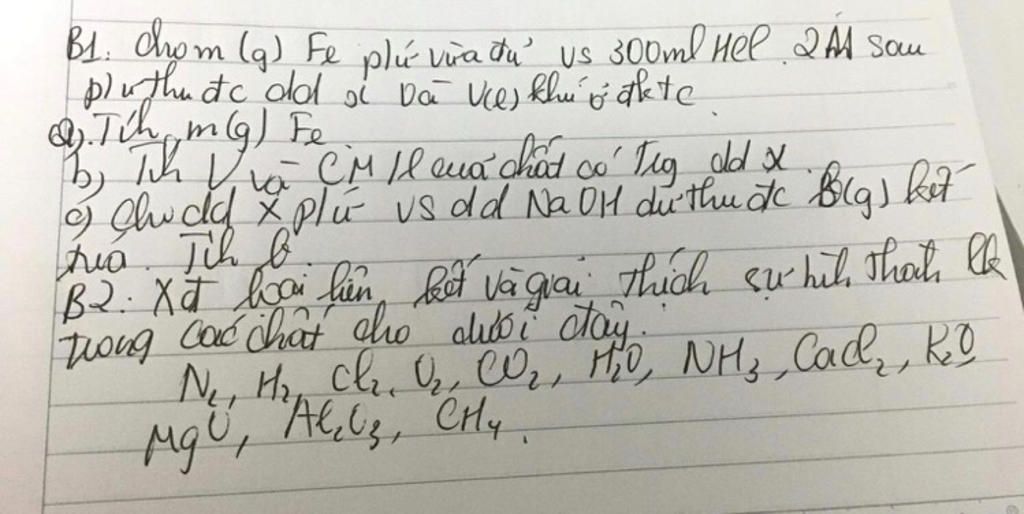 B1. Cho m (g) Fe p/ứ vừa đủ vs 300ml HCl 2M sau
p/ư thu đc dd x và V(l) khí ở đktc.
a). Tíh m(g) Fe
b) Tíh V và CM của chất có trg dd x.
c) Cho dd X p/ứ vs dd NaOH dư thu đc B(g) kết
tủa. Tíh B.
B2. Xđ loại liên kết và giải thích sự hìh thàh lk
trong các chất cho dưới đây.
N2, H2, Cl2, O2, CO2, H2O, NH3, CaCl2, K2O
MgO, Al2O3, CH4.